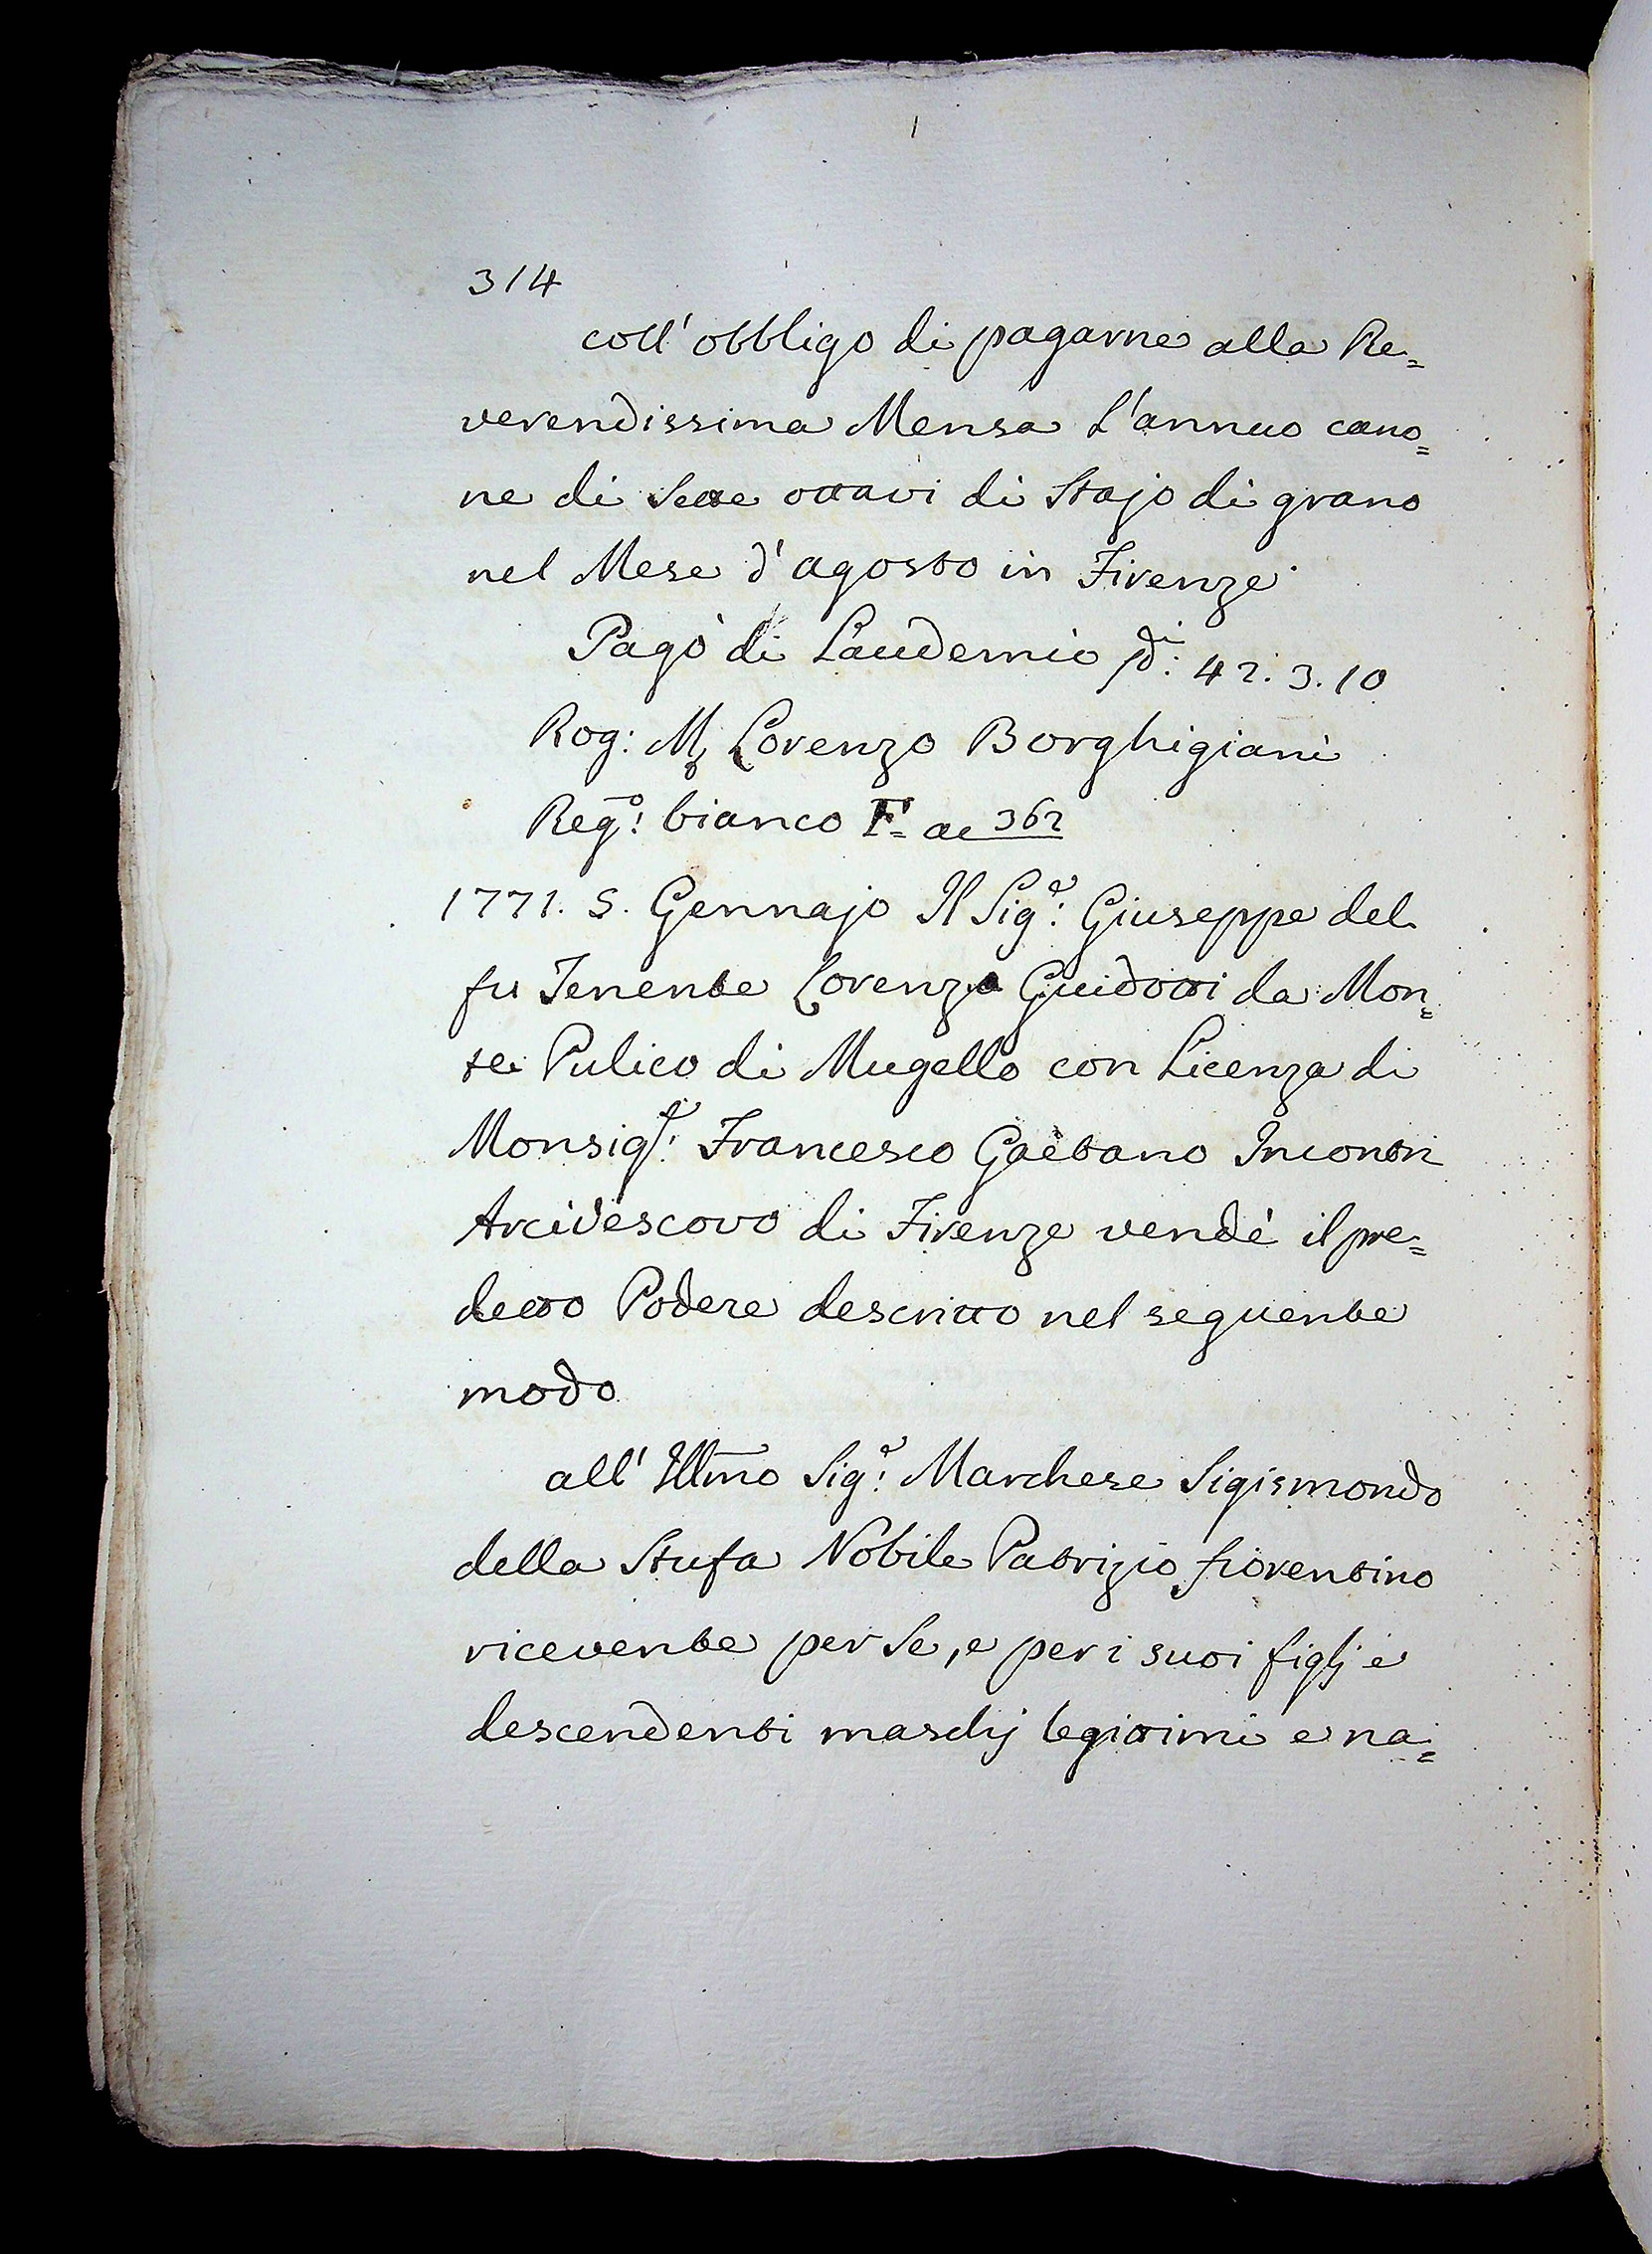 314
coll' obbligo di pagarne alla Re=
verendissima Mensa l'annuo cano=
ne di Sette ottavi di Stajo di grano
nel Mese d'agosto in Firenze
Pagò di Laudemio 42. 3. 10
Rog: Mr Lorenzo Borghigiani
Rego: bianco F= ac 362
1771. 5. Gennajo Il Sige: Giuseppe del
fu Tenente Lorenzo Guidotti da Mon=
te Pulico di Mugello con Licenza di
Monsigr: Francesco Gaetano Incontri
Arcivescovo di Firenze vendè il pre=
detto Podere descritto nel seguente
modo
all' Illmo Sige: Marchese Sigismondo
della Stufa Nobile Patrizio fiorentino
ricevente per Se, e per i suoi figlj e
descendenti maschj legittimi e na=